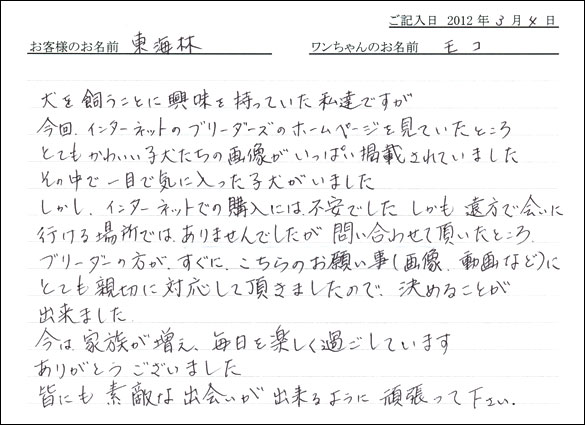 ご記入日 2012 年 3 月 4 日
お客様のお名前 東海林 ワンちゃんのお名前 モコ
犬を飼うことに興味を持っていた私達ですが
今回、インターネットのブリーダーズのホームページを見ていたところ
とてもかわいい子犬たちの画像がいっぱい掲載されていました
その中で一目で気に入った子犬がいました
しかし、インターネットでの購入には不安でした しかも遠方で会いに
行ける場所ではありませんでしたが 問い合わせて頂いたところ、
ブリーダーの方が、すぐに、こちらのお願い事(画像、動画など)に
とても親切に対応して頂きましたので、決めることが
出来ました
今は家族が増え、毎日を楽しく過ごしています
ありがとうございました
皆にも素敵な出会いが出来るように頑張って下さい.